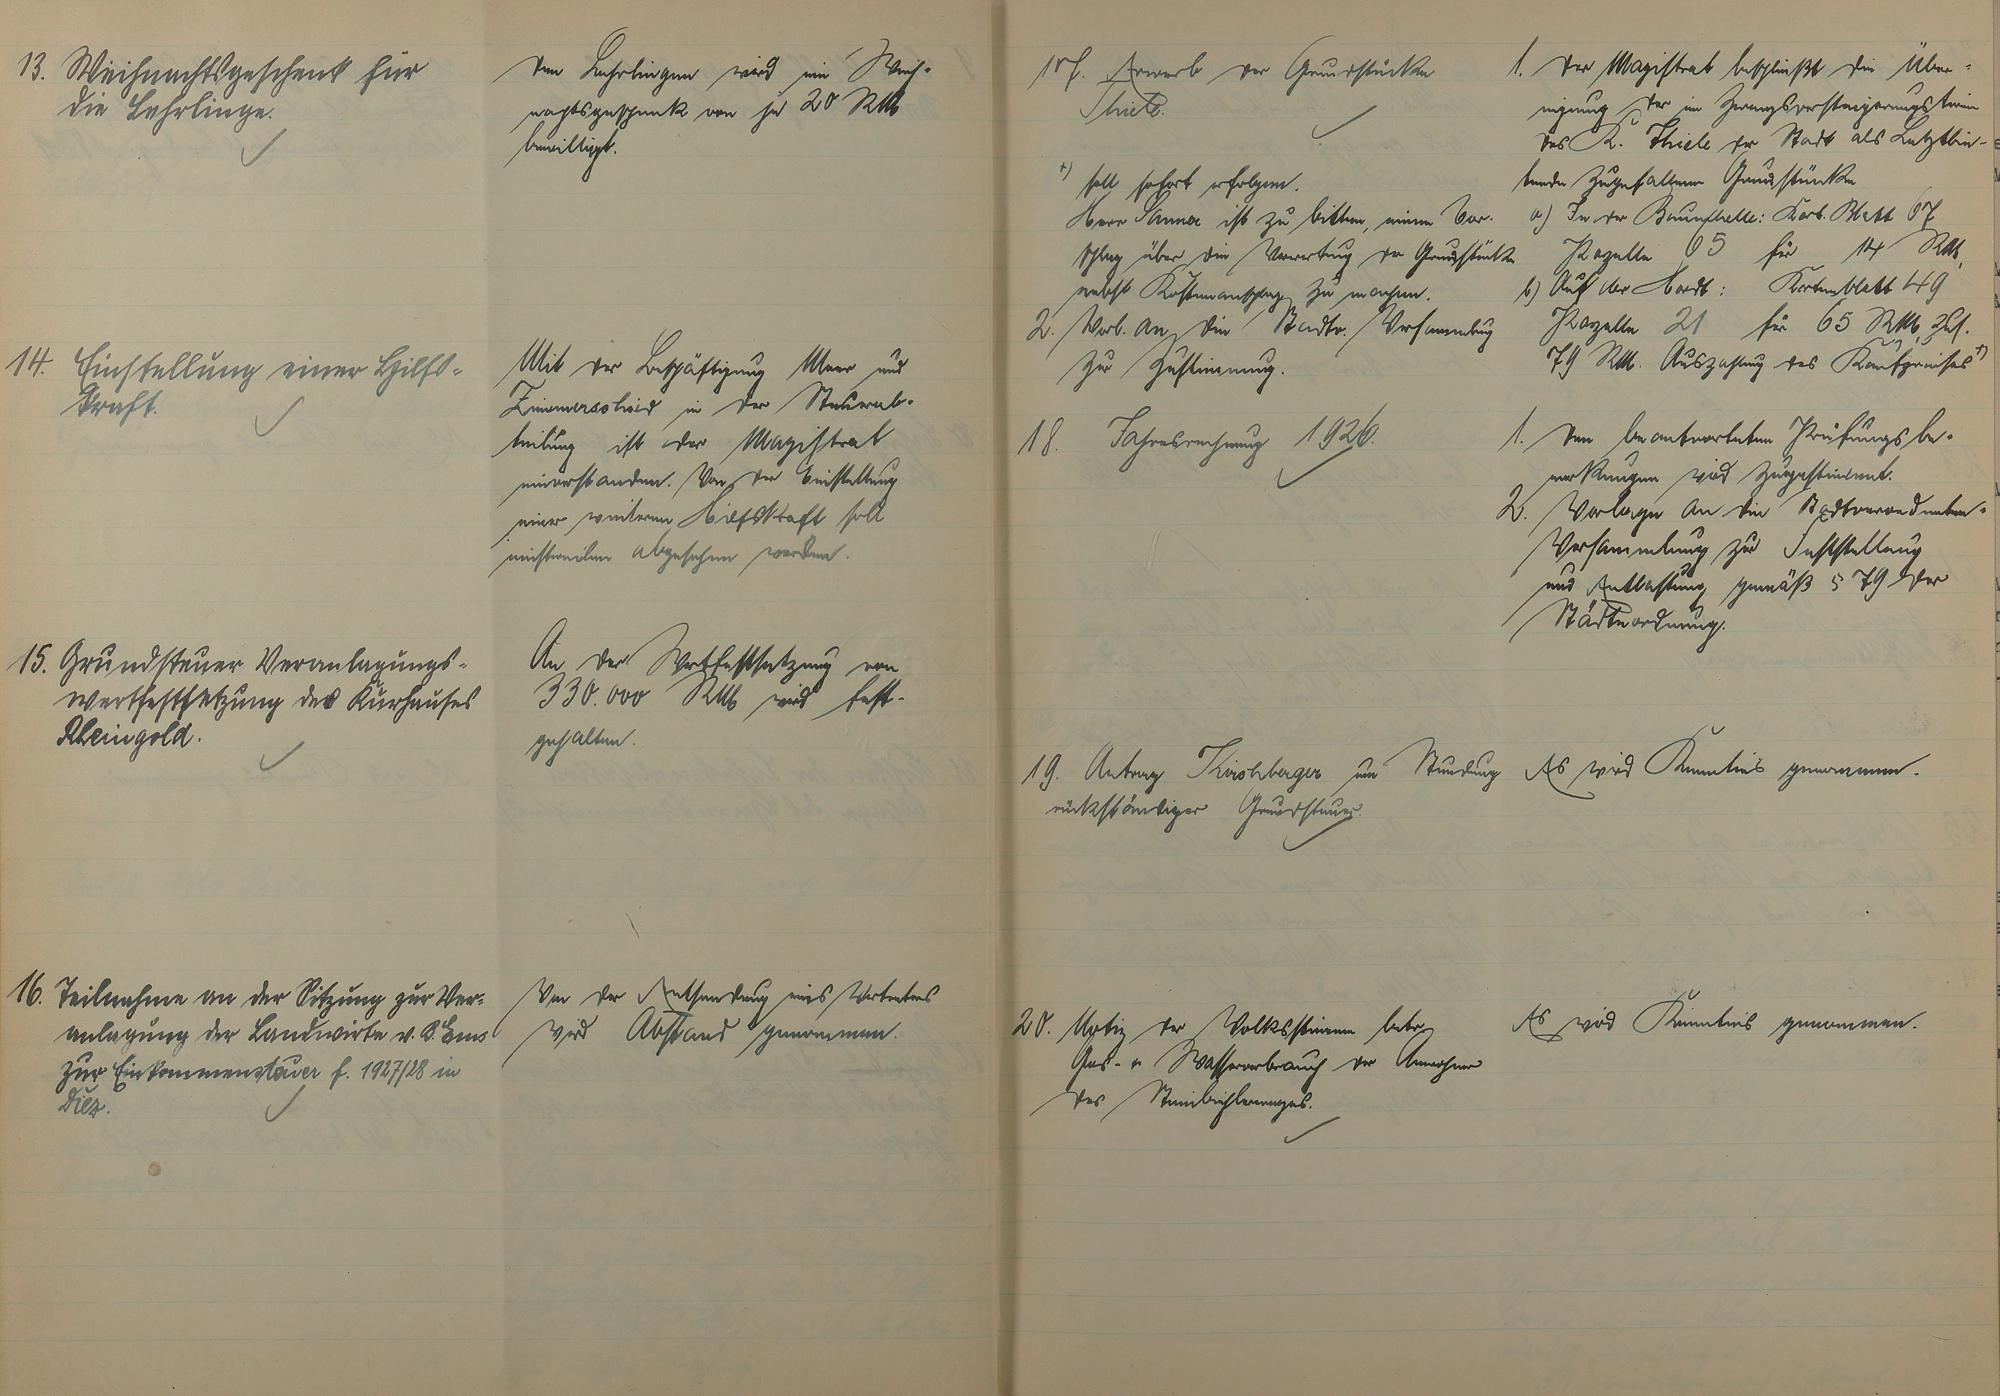 13. Weihnachtsgeschenk für
die Lehrlinge.
Den Lehrlingen wird ein Weih-
nachtsgeschenk von je 20 RM
bewilligt.
14. Einstellung einer Hilfs-
kraft.
Mit der Beschäftigung Meer und
Zimmerscheid in der Steuerab-
teilung ist der Magistrat
einverstanden. Von der Einstellung
einer weiteren Hilfskraft soll
einstweilen abgesehen werden.
15. Grundsteuer Veranlagungs-
wertfestsetzung des Kurhauses
Rheingold.
An der Wertfestsetzung von
330.000 RM wird fest-
gehalten.
16. Teilnahme an der Sitzung zur Ver-
anlagung der Landwirte v. B. Ems
zur Einkommensteuer f. 1927/28 in
Diez.
Von der Entsendung eines Vertreters
wird Abstand genommen.
17. Erwerb der Grundstücke
Thiele.
1. Der Magistrat beschließt die Über-
eignung der im Zwangsversteigerungstermin
des K. Thiele der Stadt als Letztbie-
tende zugefallenen Grundstücke
a) In der Braunhelle: Kart. Blatt 67
Parzelle 65 für 14 RM,
b) Auf der Hardt: Kartenblatt 49
Parzelle 21 für 65 RM, zus.
79 RM. Auszahlung des Kaufpreises +)
+) soll sofort erfolgen.
Herr ist zu bitten, einen Vor-
schlag über die Verwertung der Grundstücke
nebst Kostenanschlag zu machen.
2. Vorl. an die Stadtv. Versammlung
zur Zustimmung.
18. Jahresrechnung 1926.
1. Den beantworteten Prüfungsbe-
merkungen wird zugestimmt.
2. Vorlage an die Stadtverordneten-
Versammlung zur Feststellung
und Entlastung gemäß § 79 der
Städteordnung.
19. Antrag Kirschberger um Stundung
rückständiger Grundsteuer.
Es wird Kenntnis genommen.
20. Notiz der Volksstimme betr.
Gas- u Wasserverbrauch der Anwohner
des
Es wird Kenntnis genommen.